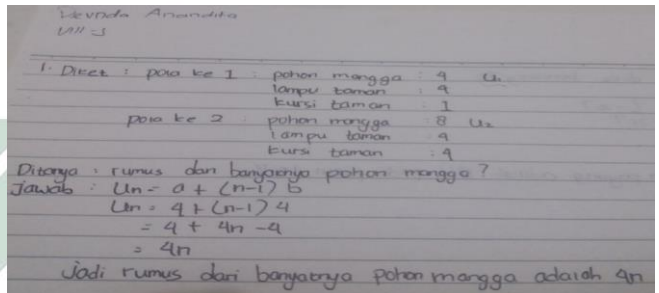 Vevnda Anandita
VIII - J
1. Diket : pola ke 1 : pohon mangga : 4 U₁
lampu taman : 4
kursi taman : 1
pola ke 2 pohon mangga : 8 U₂
lampu taman : 4
kursi taman : 4
Ditanya : rumus dari banyaknya pohon mangga ?
Jawab : Un = a + (n-1) b
Un = 4 + (n-1) 4
= 4 + 4n - 4
= 4n
Jadi rumus dari banyaknya pohon mangga adalah 4n